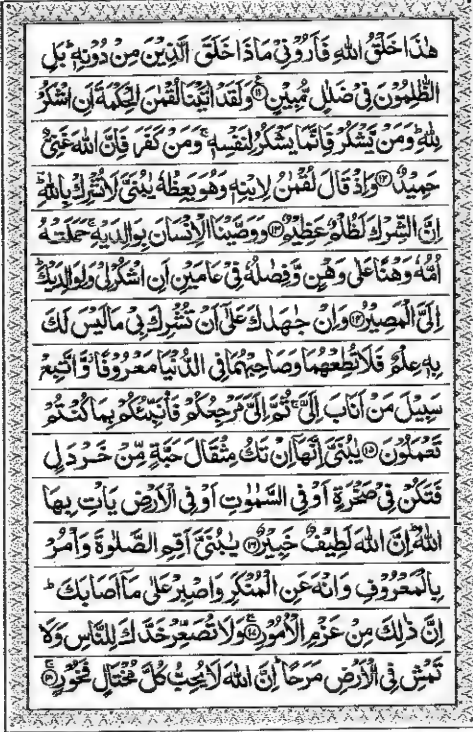 هٰذَا خَلْقُ اللّٰهِ فَاَرُوْنِیْ مَاذَا خَلَقَ الَّذِیْنَ مِنْ دُوْنِهٖ ؕ بَلِ
الظّٰلِمُوْنَ فِیْ ضَلٰلٍ مُّبِیْنٍ ﴿۱۱﴾ وَلَقَدْ اٰتَیْنَا لُقْمٰنَ الْحِكْمَةَ اَنِ اشْكُرْ
لِلّٰهِ ؕ وَمَنْ یَّشْكُرْ فَاِنَّمَا یَشْكُرُ لِنَفْسِهٖ ۚ وَمَنْ كَفَرَ فَاِنَّ اللّٰهَ غَنِیٌّ
حَمِیْدٌ ﴿۱۲﴾ وَاِذْ قَالَ لُقْمٰنُ لِابْنِهٖ وَهُوَ یَعِظُهٗ یٰبُنَیَّ لَا تُشْرِكْ بِاللّٰهِ ؕ
اِنَّ الشِّرْكَ لَظُلْمٌ عَظِیْمٌ ﴿۱۳﴾ وَوَصَّیْنَا الْاِنْسَانَ بِوَالِدَیْهِ ۚ حَمَلَتْهُ
اُمُّهٗ وَهْنًا عَلٰی وَهْنٍ وَّفِصٰلُهٗ فِیْ عَامَیْنِ اَنِ اشْكُرْ لِیْ وَلِوَالِدَیْكَ ؕ
اِلَیَّ الْمَصِیْرُ ﴿۱۴﴾ وَاِنْ جٰهَدٰكَ عَلٰۤی اَنْ تُشْرِكَ بِیْ مَا لَیْسَ لَكَ
بِهٖ عِلْمٌ فَلَا تُطِعْهُمَا وَصَاحِبْهُمَا فِی الدُّنْیَا مَعْرُوْفًا ؗ وَّاتَّبِعْ
سَبِیْلَ مَنْ اَنَابَ اِلَیَّ ۚ ثُمَّ اِلَیَّ مَرْجِعُكُمْ فَاُنَبِّئُكُمْ بِمَا كُنْتُمْ
تَعْمَلُوْنَ ﴿۱۵﴾ یٰبُنَیَّ اِنَّهَاۤ اِنْ تَكُ مِثْقَالَ حَبَّةٍ مِّنْ خَرْدَلٍ
فَتَكُنْ فِیْ صَخْرَةٍ اَوْ فِی السَّمٰوٰتِ اَوْ فِی الْاَرْضِ یَاْتِ بِهَا
اللّٰهُ ؕ اِنَّ اللّٰهَ لَطِیْفٌ خَبِیْرٌ ﴿۱۶﴾ یٰبُنَیَّ اَقِمِ الصَّلٰوةَ وَاْمُرْ
بِالْمَعْرُوْفِ وَانْهَ عَنِ الْمُنْكَرِ وَاصْبِرْ عَلٰی مَاۤ اَصَابَكَ ؕ
اِنَّ ذٰلِكَ مِنْ عَزْمِ الْاُمُوْرِ ﴿۱۷﴾ وَلَا تُصَعِّرْ خَدَّكَ لِلنَّاسِ وَلَا
تَمْشِ فِی الْاَرْضِ مَرَحًا ؕ اِنَّ اللّٰهَ لَا یُحِبُّ كُلَّ مُخْتَالٍ فَخُوْرٍ ﴿۱۸﴾